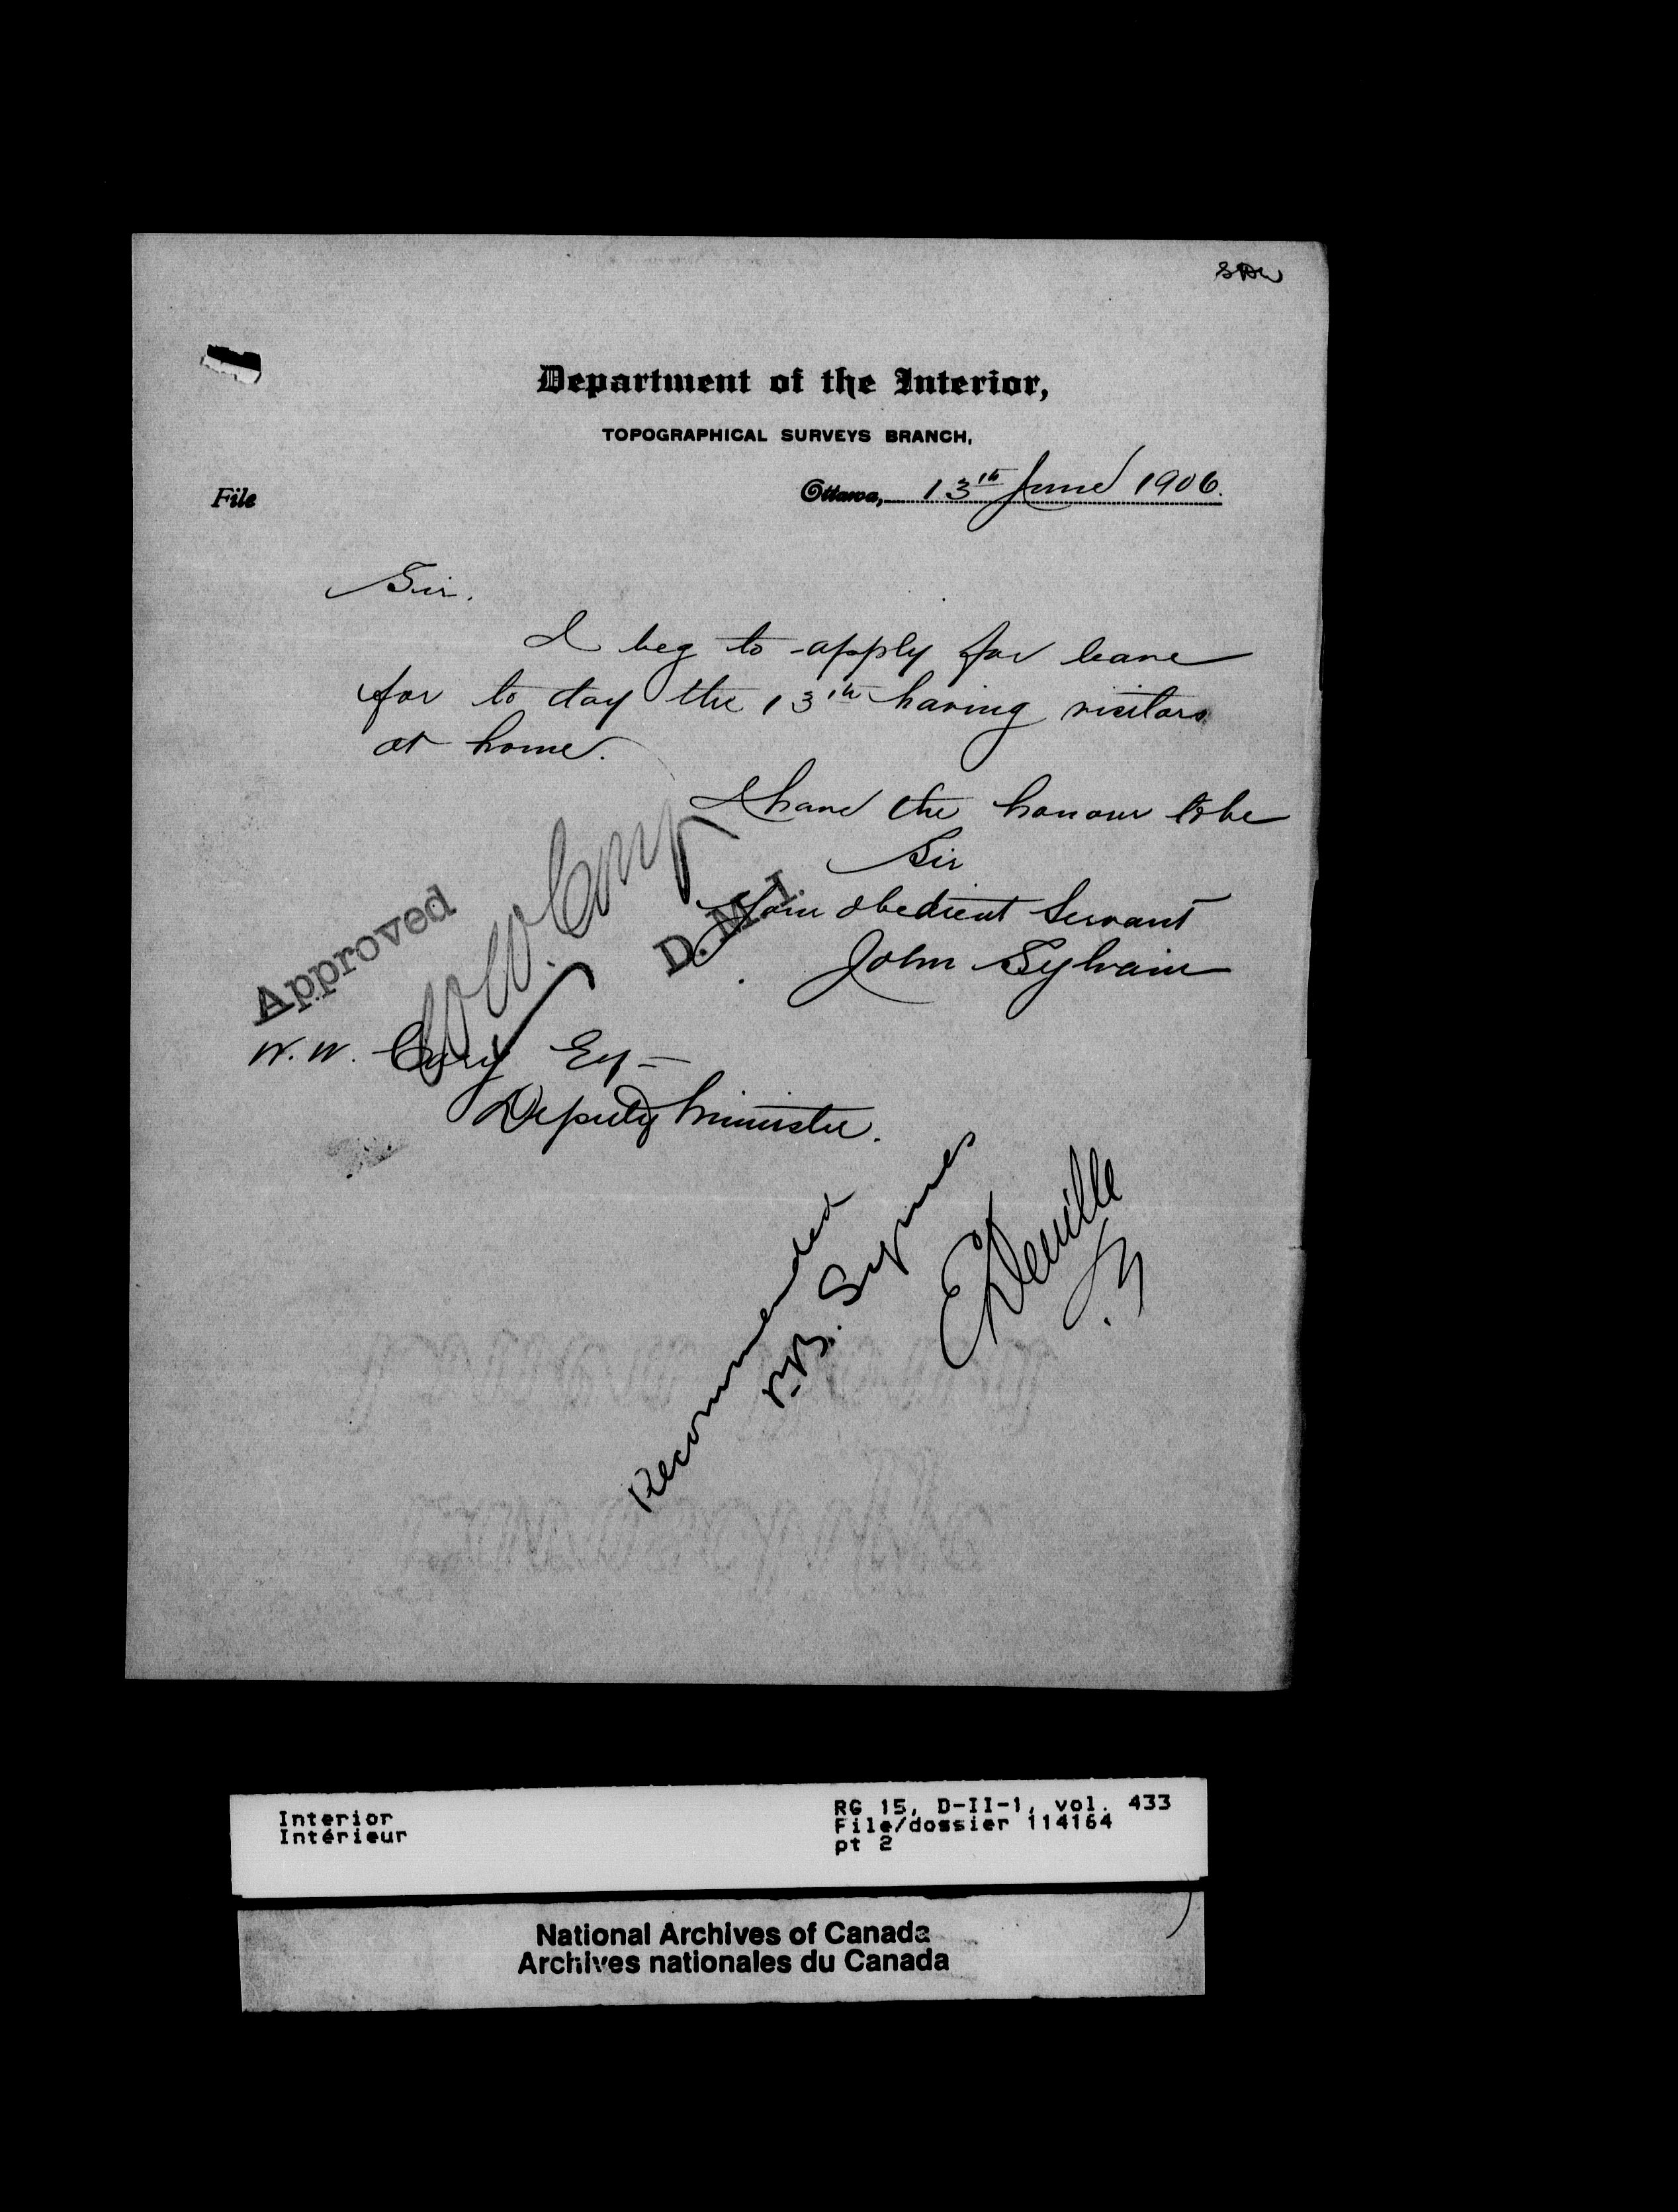 Department of the Interior,
TOPOGRAPHICAL SURVEYS BRANCH,
File
Ottawa, 13th June 1906.
Sir.
I beg to apply for leave
for to day the 13th having visitors
at home.
I have the honour to be
Sir
Your obedient Servant
John Sylvain
Approved
W. W. Cory
D.M.I.
W. W. Cory Esq
Deputy Minister.
Recommended
P.B. Symes
E Deville
S.G.
Interior
Intérieur
RG 15, D-II-1, vol. 433
File/dossier 114164
pt 2
National Archives of Canada
Archives nationales du Canada